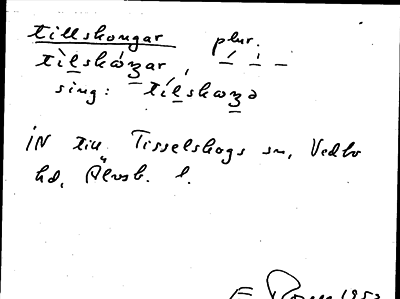 tillskongar plur.
tìlskåʒar,
sing: tílskaʒə
iN till Tisselskogs sn, Vedbo
hd, Älvsb. l.